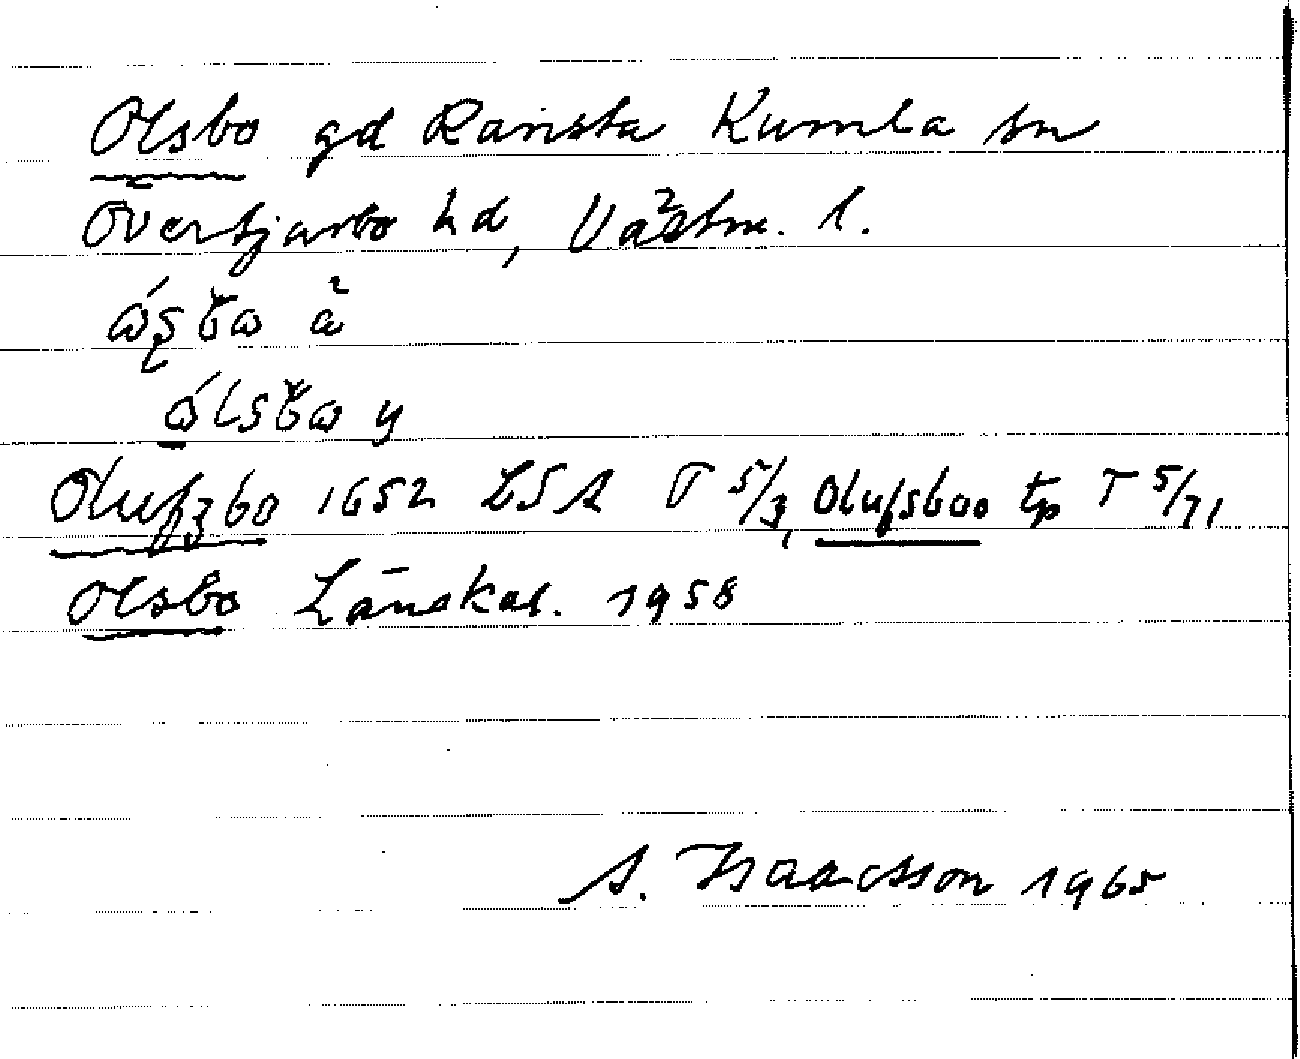 Olsbo gd Ransta Kumla sn
Övertjurbo hd, Västm. l.
Olufzbo 1652 LSA T 5/3, Olufsboo tp T 5/71
Olsbo Länskal. 1958
A. Isaacsson 1965